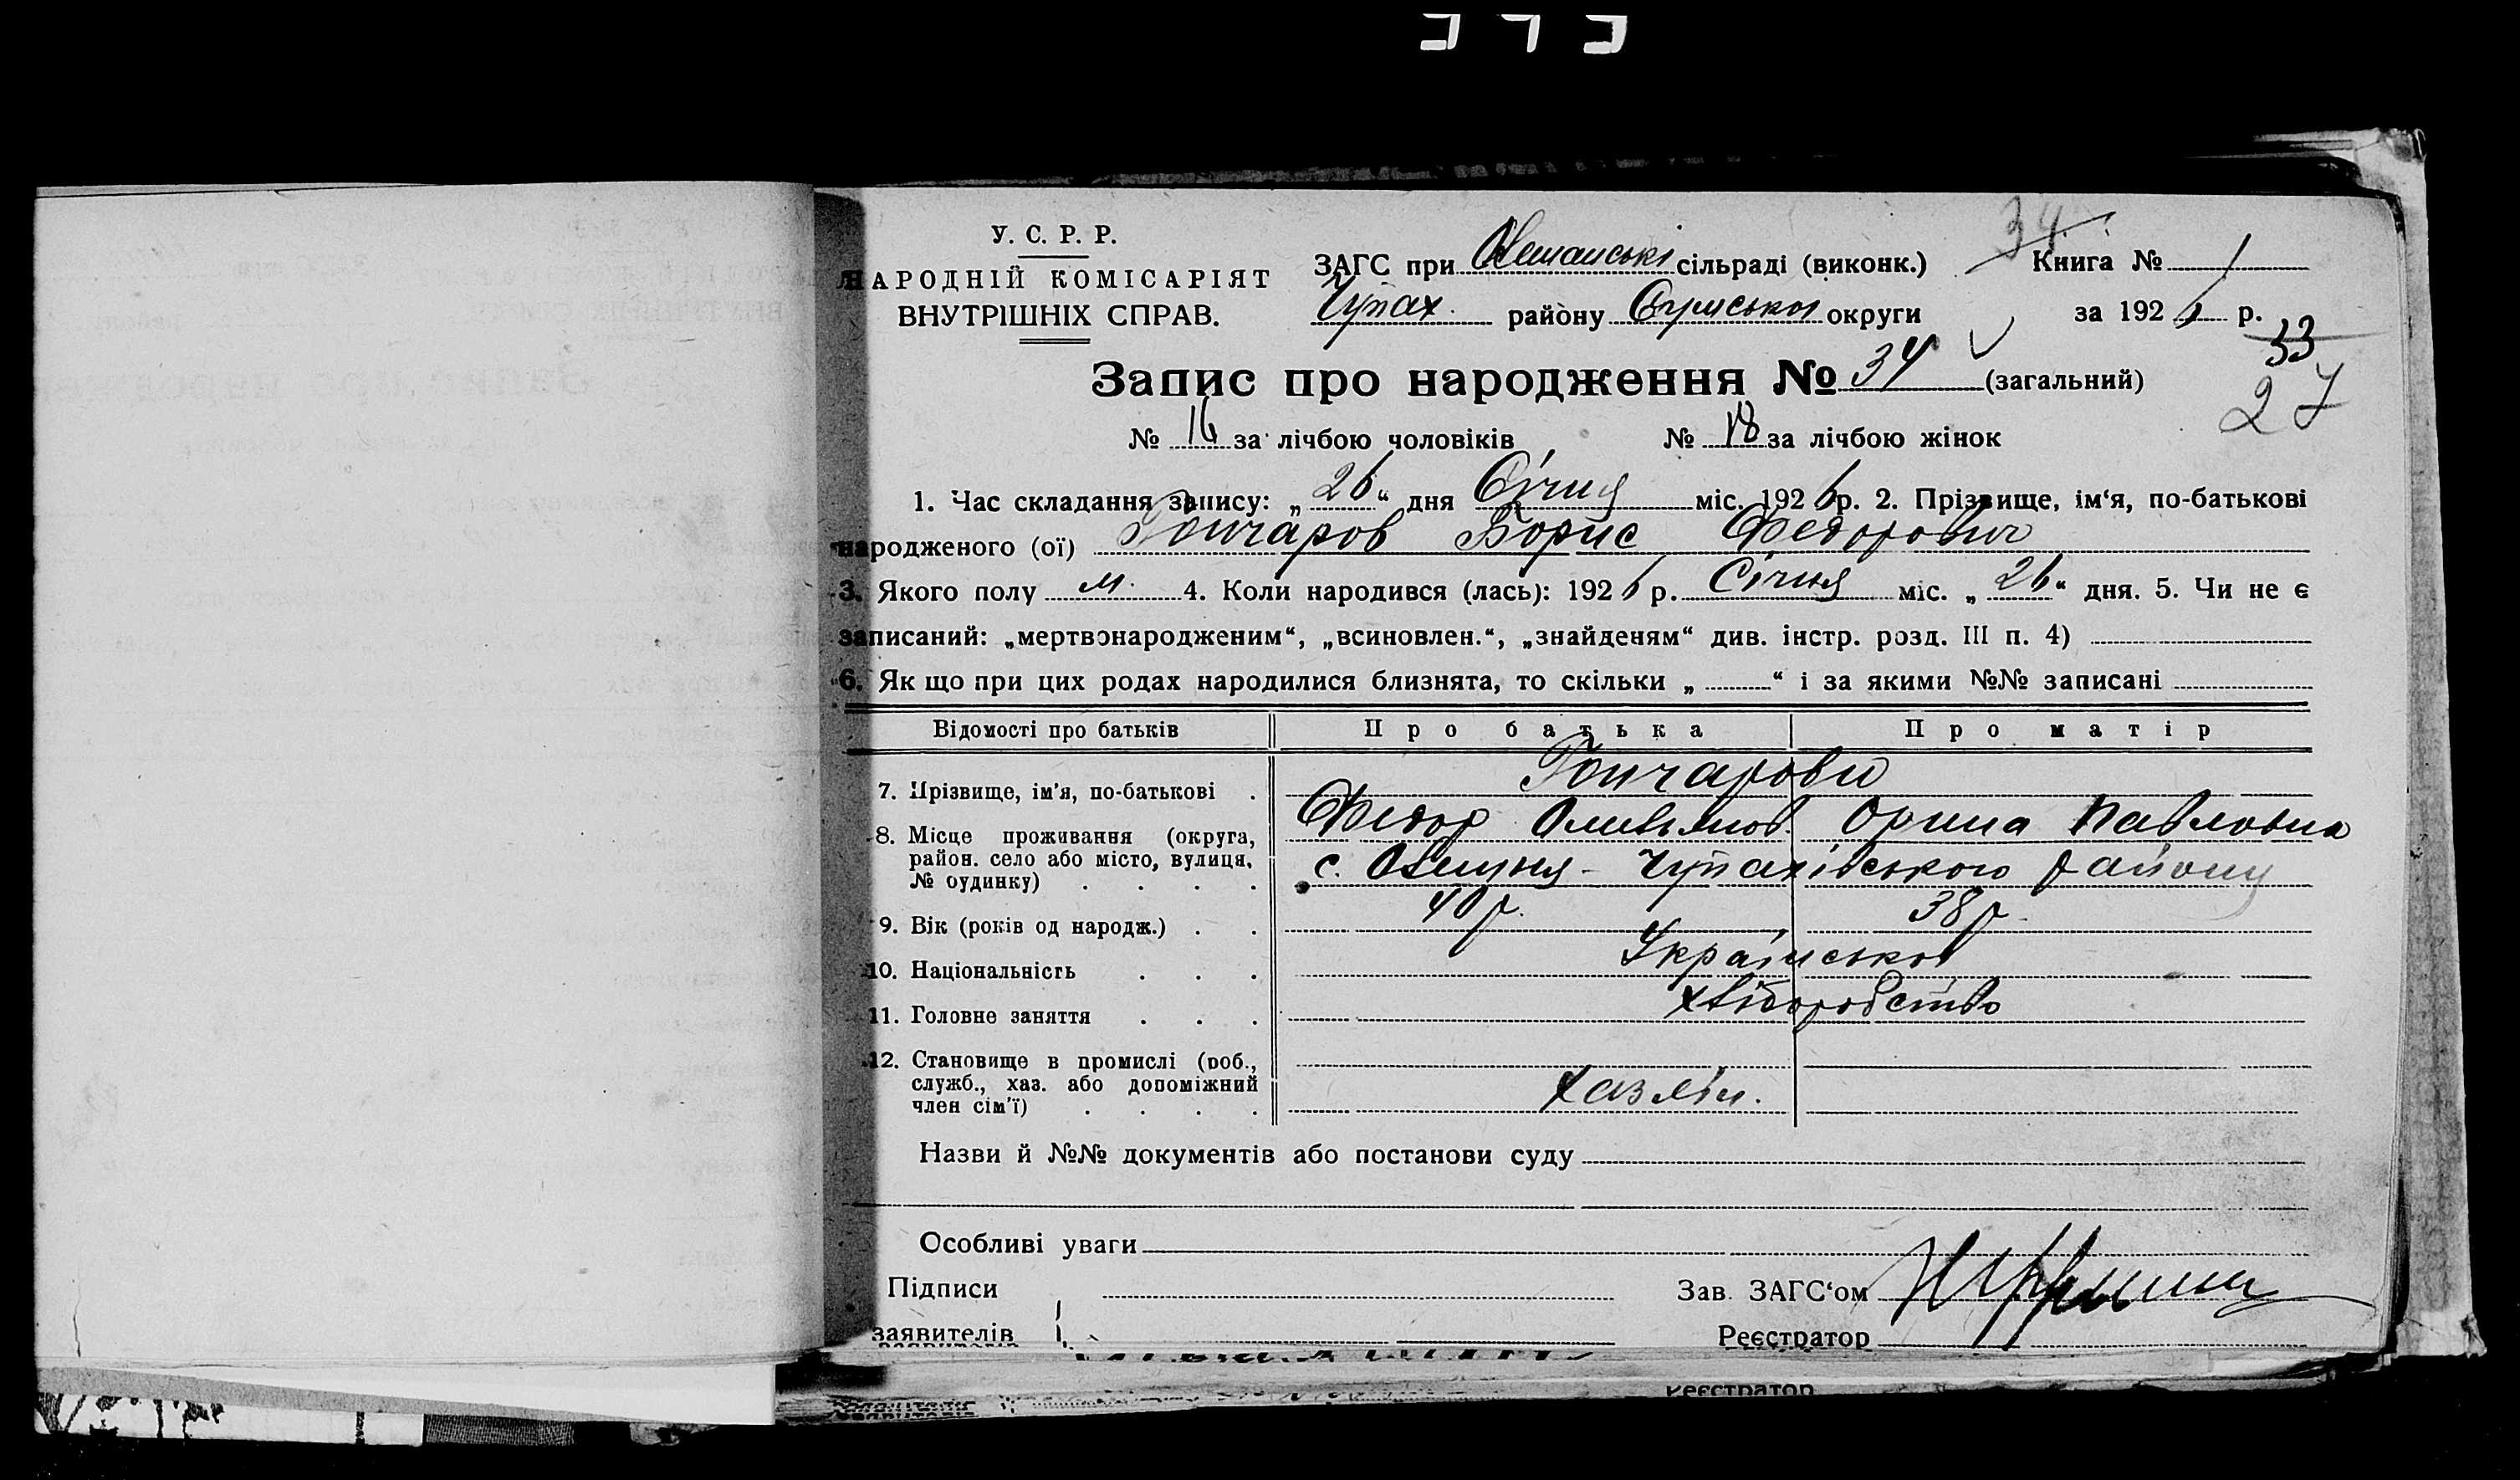 34
У. С. Р. Р.
НАРОДНІЙ КОМІСАРІЯТ
ВНУТРІШНІХ СПРАВ.
ЗАГС при сільраді (виконк.)
Чупах. району Сумської округи
Книга № 1
за 1926 р.
33
27
Запис про народження № 34 (загальний)
№ 16 за лічбою чоловіків № 18 за лічбою жінок
1. Час складання запису: „26“ дня Січня міс. 1926 р. 2. Прізвище, ім‘я, по-батькові
народженого (ої) Гончаров Борис Федорович
3. Якого полу м. 4. Коли народився (лась): 1926 р. Січня міс. „26“ дня. 5. Чи не є
записаний: „мертвонародженим“, „всиновлен.“, „знайденям“ див. інстр. розд. III п. 4)
6. Як що при цих родах народилися близнята, то скільки „ “ і за якими №№ записані
Відомості про батьків Про батька Про матір
7. Прізвище, ім'я, по-батькові . Гончарови
Федор Орина Павловна
8. Місце проживання (округа,
район. село або місто, вулиця,
№ будинку) . . . .
с. Чупахівського району
9. Вік (років од народж.) . . 40 р. 38 р.
10. Національність . . . Українськоі
11. Головне заняття . . . хліборобство
12. Становище в промислі (роб.,
служб., хаз. або допоміжний
член сім'ї) . . . .
хазяін.
Назви й №№ документів або постанови суду
Особливі уваги
Підписи
заявителів
Зав. ЗАГС‘ом
Реєстратор
Реєстратор